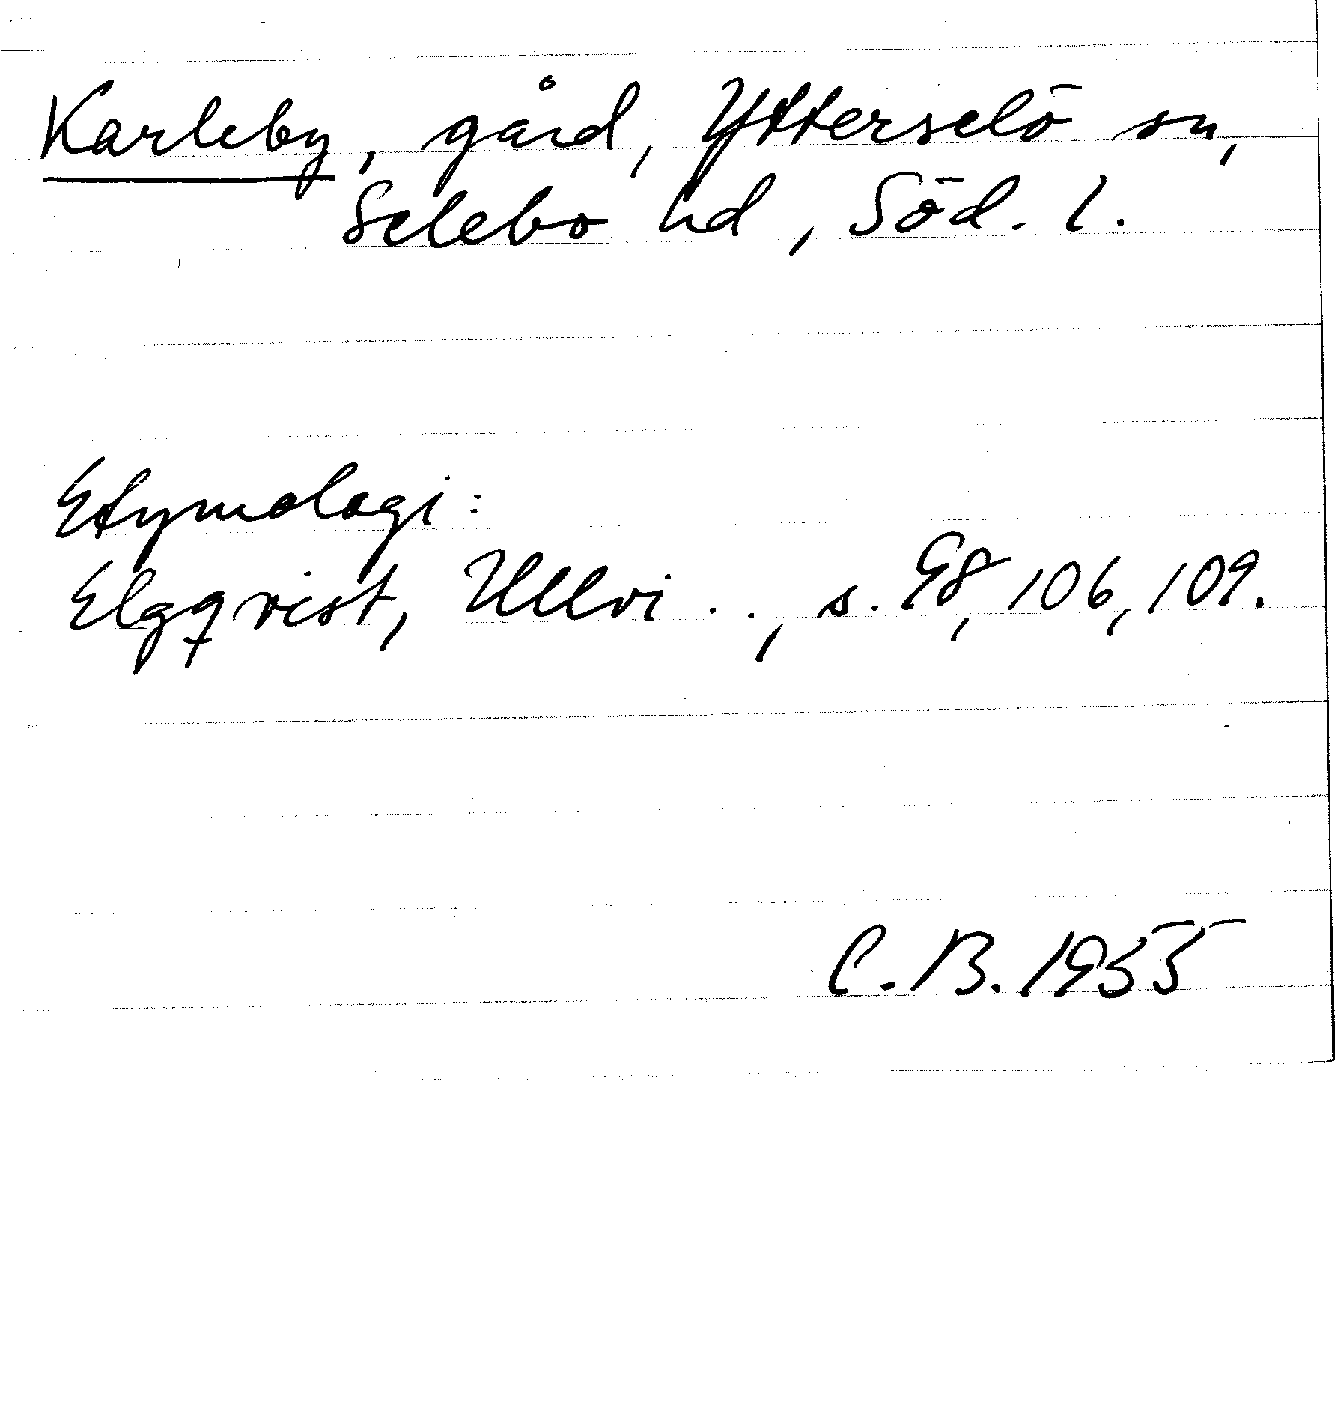 Karleby, gård, Ytterselö sn,
Selebo hd, Söd. l.
Etymologi:
Elgqvist, Ullvi . ., s. 98, 106, 109.
C. B. 1955